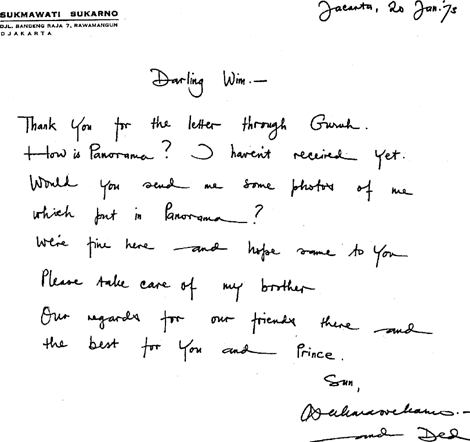 SUKMAWATI SUKARNO
DJL. BANDENG RAJA 7, RAWAMANGUN
DJAKARTA
Jacarta, 20 Jan. '75
Darling Wim.—
Thank You for the letter through Guruh.
How is Panorama? I haven't received yet.
Would you send me some photos of me
which put in Panorama?
We're fine here and hope same to You
Please take care of my brother
Our regards for our friends there and
the best for You and Prince.
Sun,
and Ded